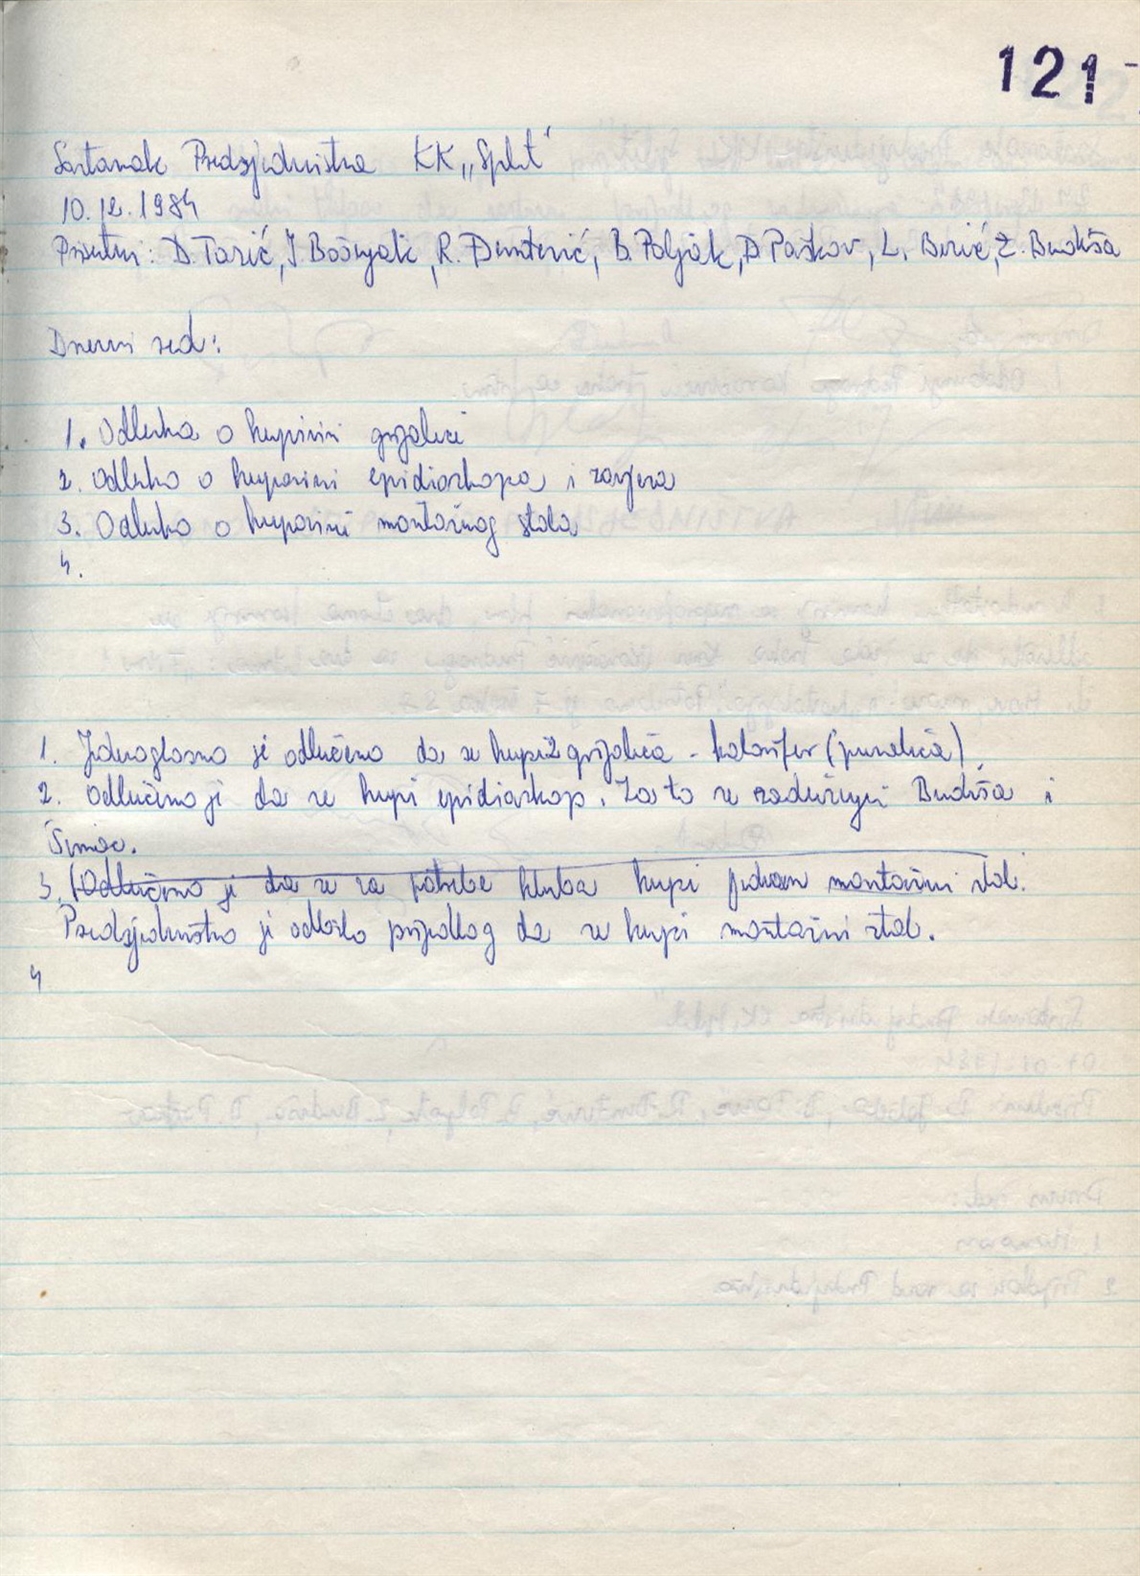 121
Sastanak Predsjedništva KK „Split"
10.12.1984
Prisutni: D. Tarić, J Bošnjak, R. Dumterić, B. Poljak, D Paškov, L. Berić, Ž. Budiša
Dnevni red:
1. Odluka o kupovini grijalice
2. Odluka o kupovini epidiaskopa i
3. Odluka o kupovini montažnog stola
4.
1. Jednoglasno je odlučeno da se kupi grijalica - kalorifer (puvalica)
2. Odlučeno je da se kupi epidiaskop. Za to se zadužuje Budiša i
Šimac.
3. Odlučeno je da se za potrebe kluba kupi jedan montažni stol.
Predsjedništvo je odbilo prijedlog da se kupi montažni stol.
4